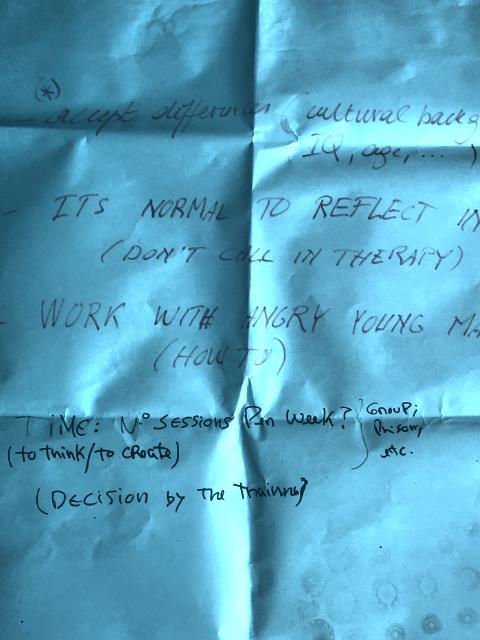 (*)
- accept differences (cultural backg
IQ, age, ... )
- ITS NORMAL TO REFLECT IN
(DON'T CALL IN THERAPY)
- WORK WITH ANGRY YOUNG MA
(HOW TO)
TIME: Nº SESSIONS Per week? } Group;
(to think/to create) Prison,
etc.
(DECISION by The Trainer)